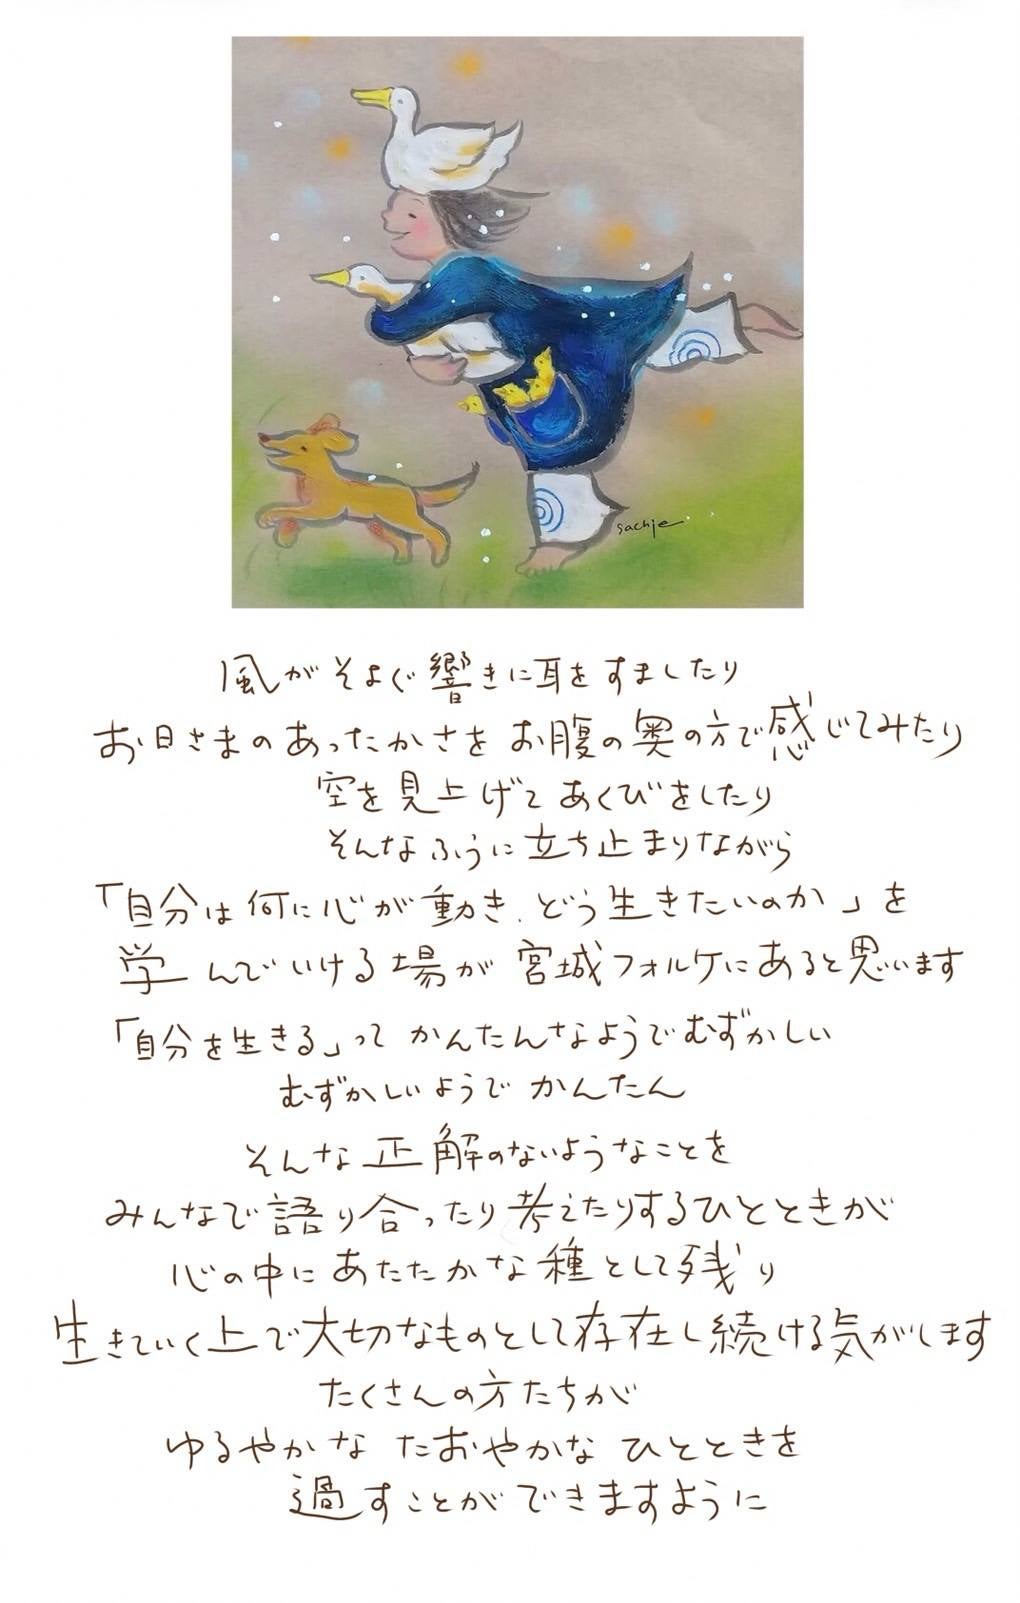 sachie
風がそよぐ響きに耳をすましたり
お日さまのあったかさをお腹の奥の方で感じてみたり
空を見上げてあくびをしたり
そんなふうに立ち止まりながら
「自分は何に心が動き、どう生きたいのか」を
学んでいける場が宮城フォルケにあると思います
「自分を生きる」ってかんたんなようでむずかしい
むずかしいようでかんたん
そんな正解のないようなことを
みんなで語り合ったり考えたりするひとときが
心の中にあたたかな種として残り
生きていく上で大切なものとして存在し続ける気がします
たくさんの方たちが
ゆるやかな たおやかな ひとときを
過すことができますように